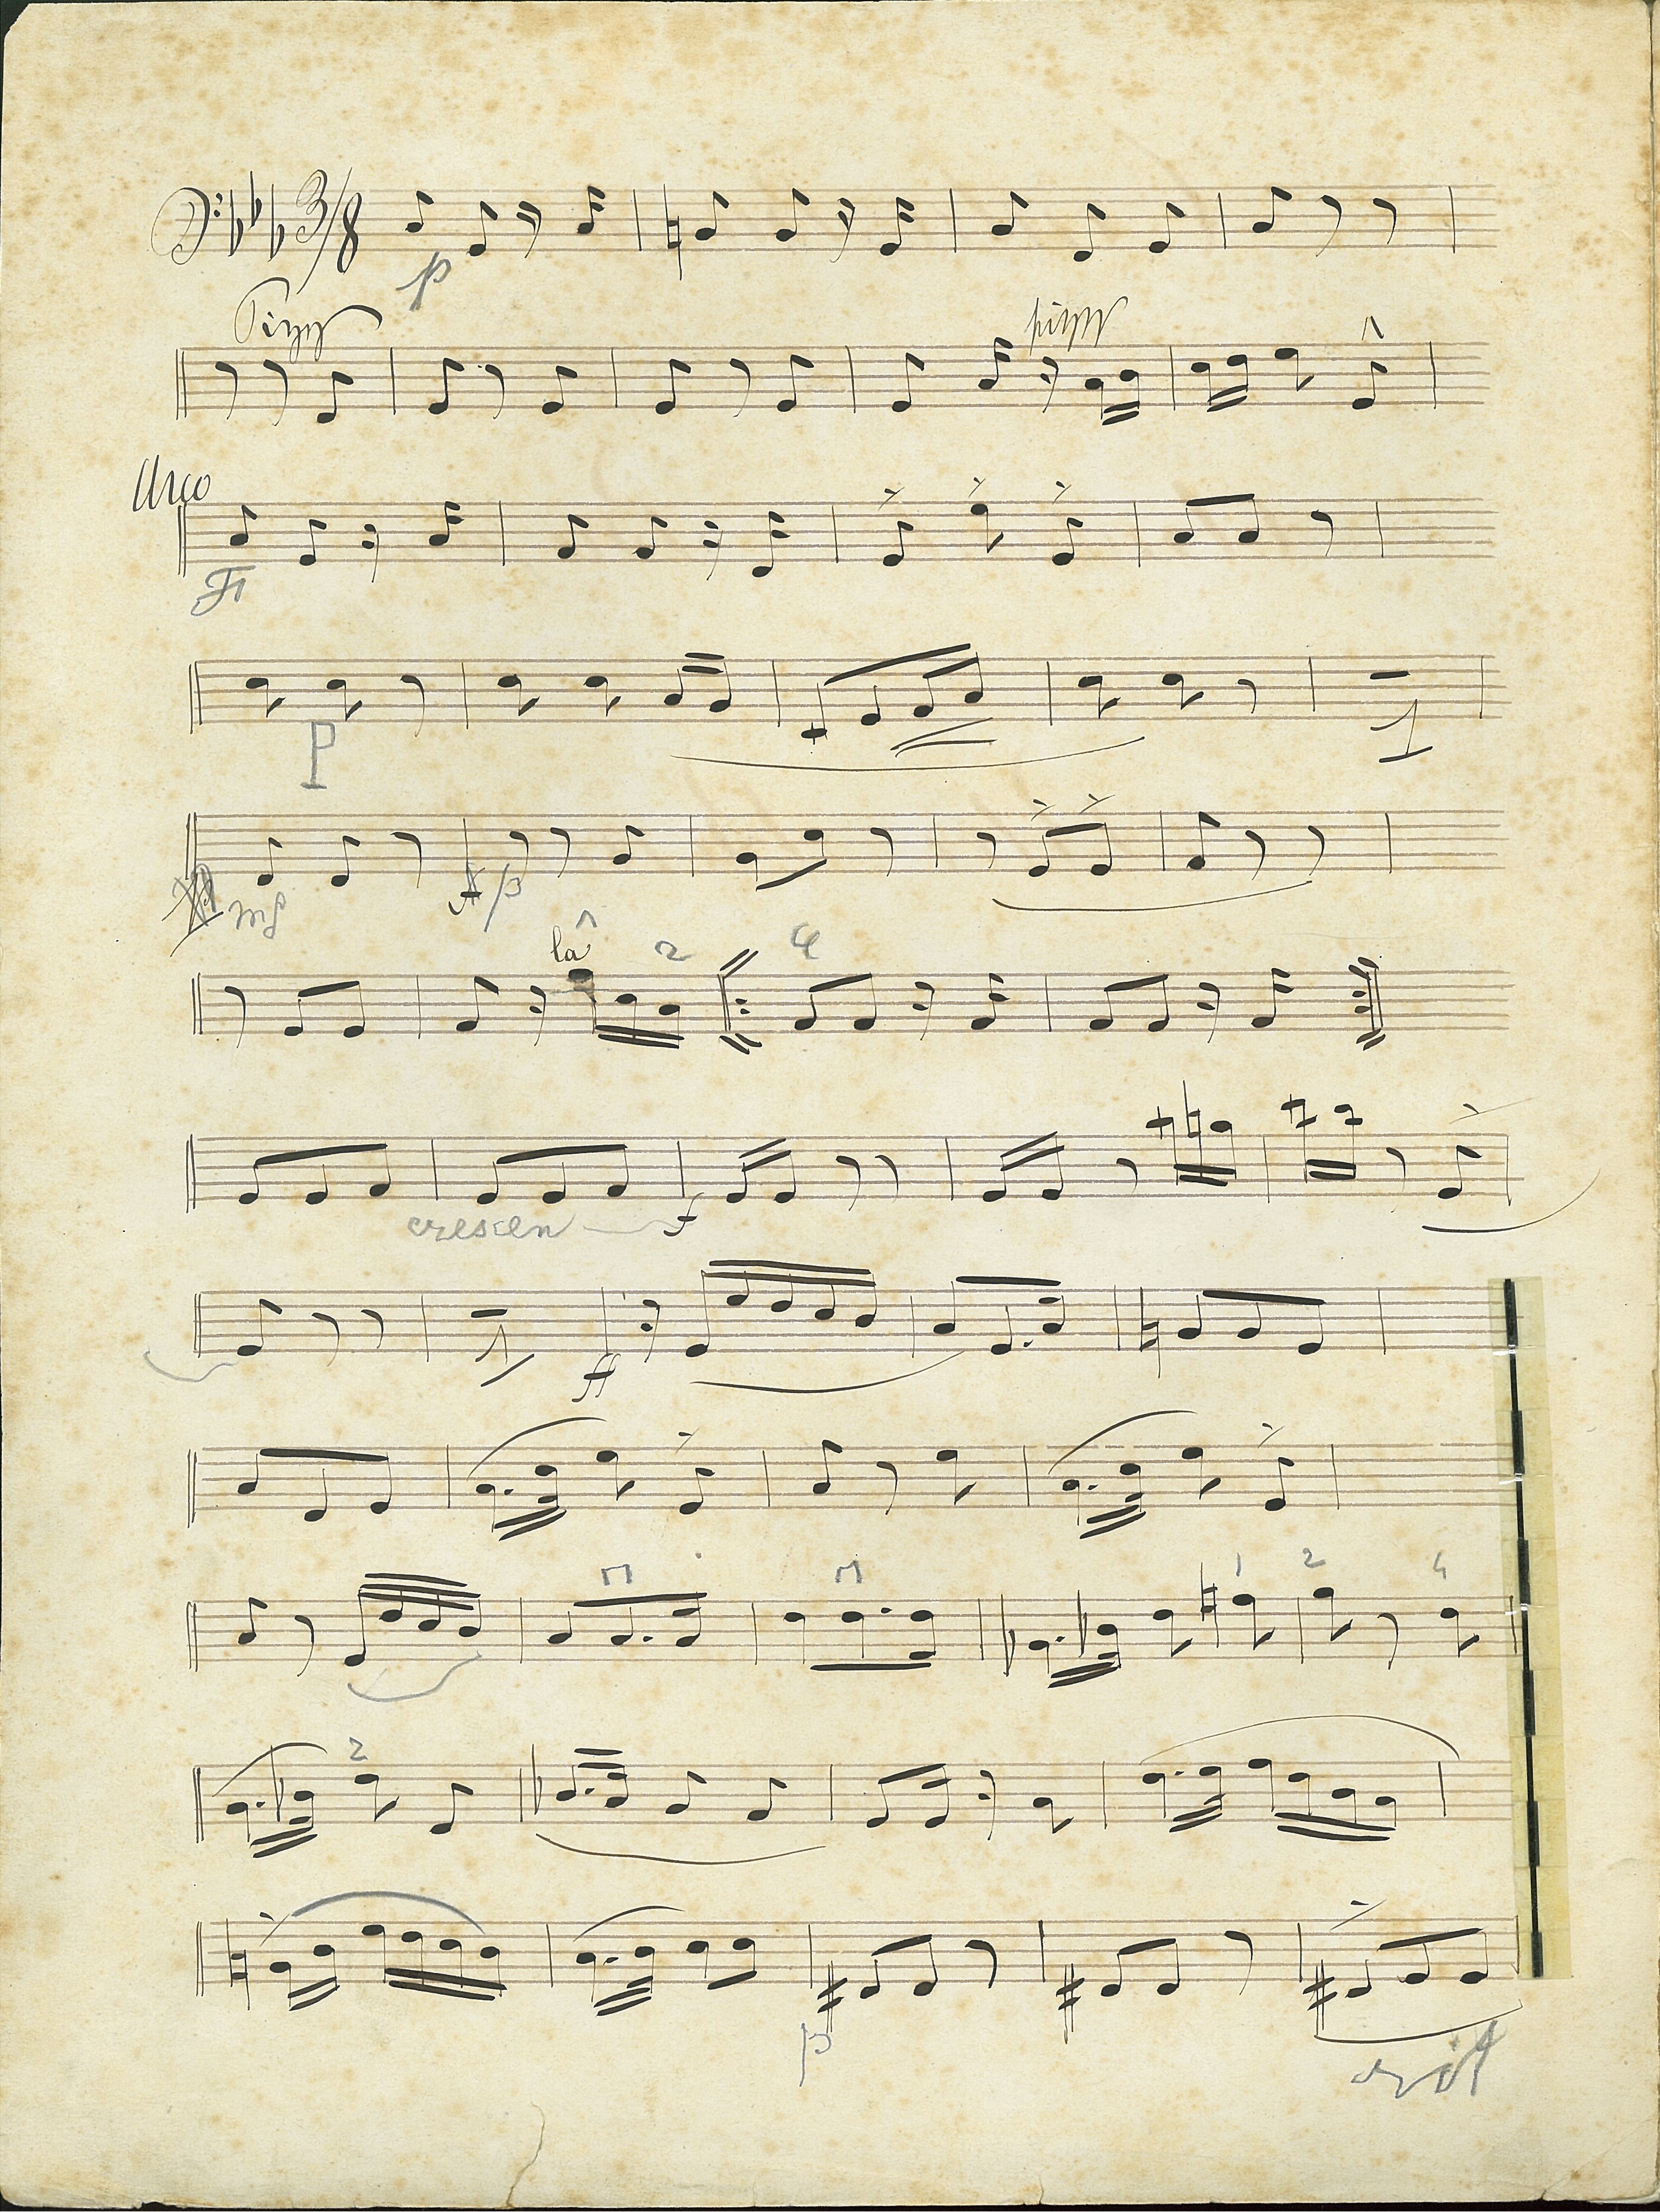 3/8
p
Pizz
pizz
Arco
p
1
mf
p
la
2 4
crescen
f
1
ff
1 2 4
2
p